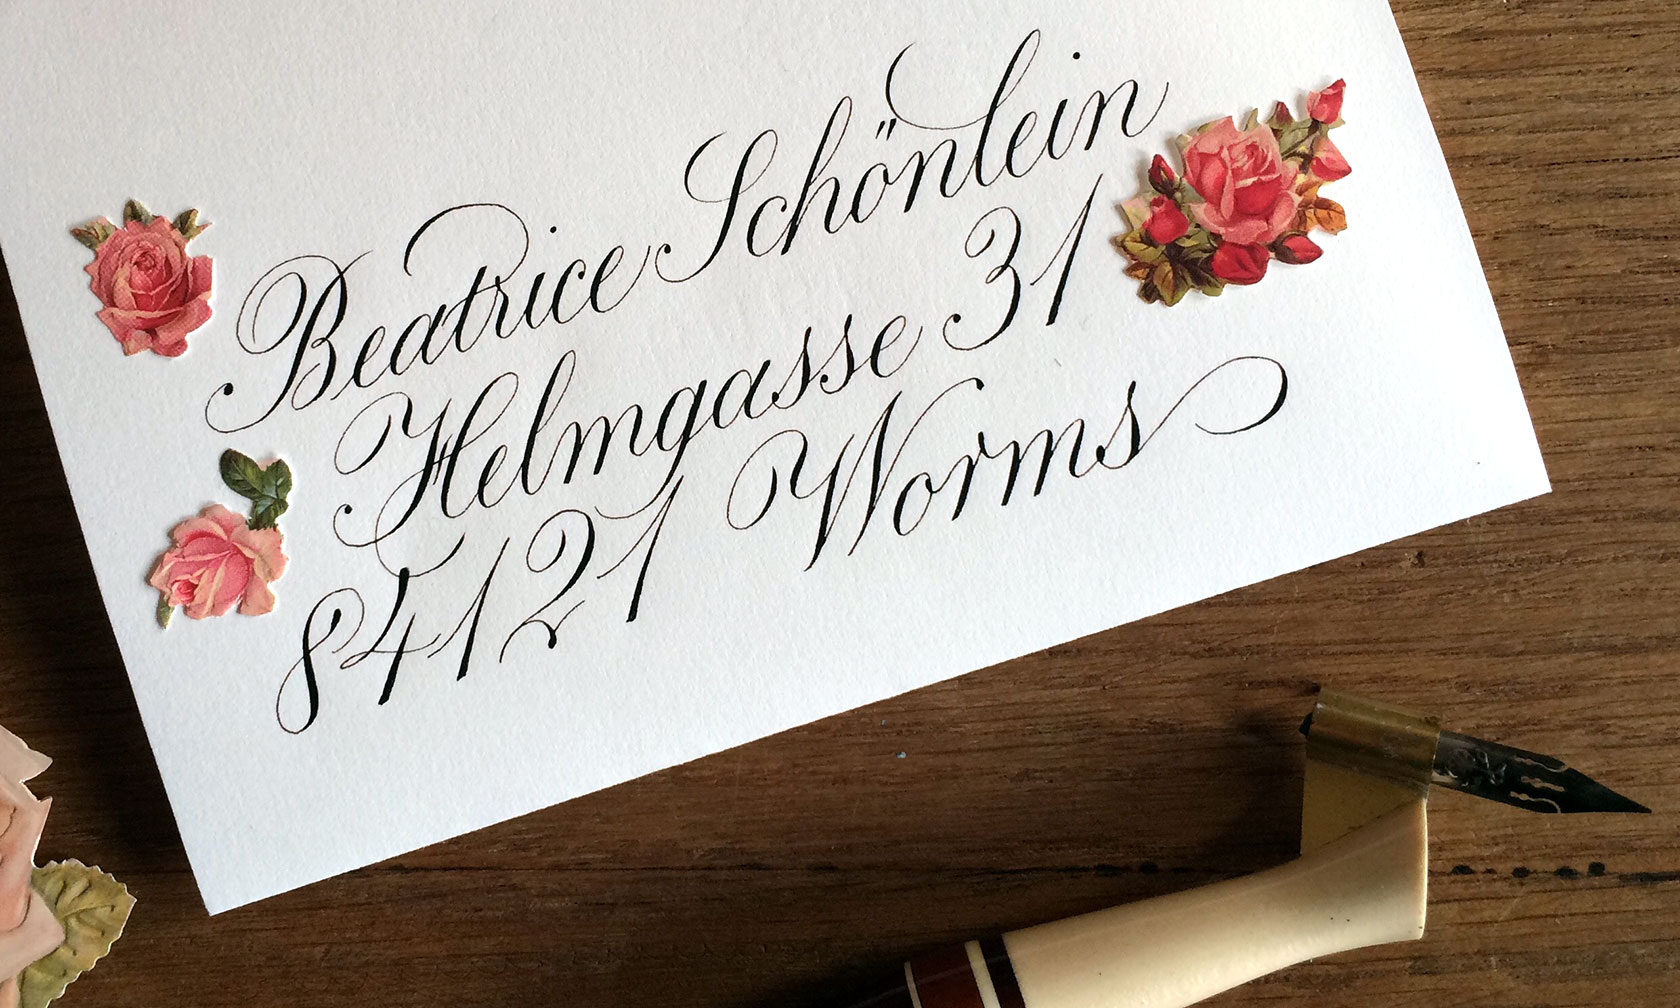 Beatrice Schönlein
Helmgasse 31
84121 Worms